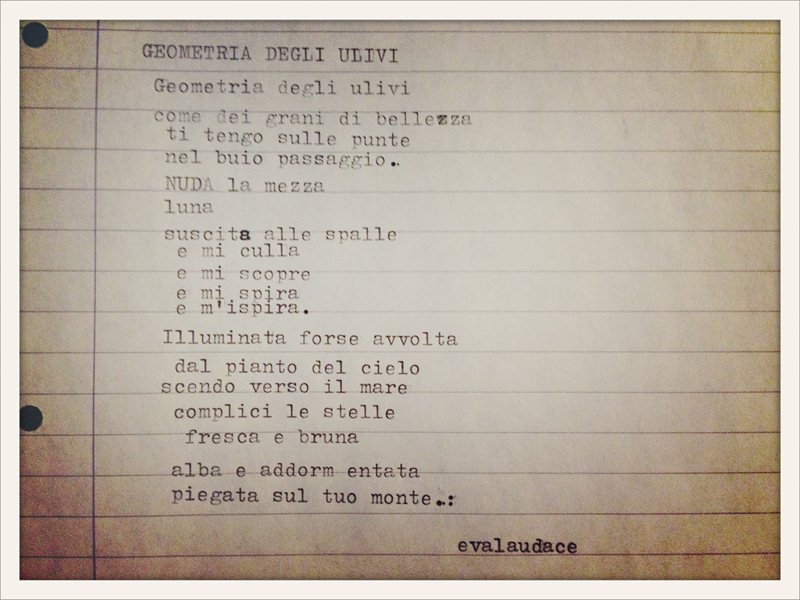 GEOMETRIA DEGLI ULIVI
Geometria degli ulivi
come dei grani di bellezza
ti tengo sulle punte
nel buio passaggio..
NUDA la mezza
luna
suscita alle spalle
e mi culla
e mi scopre
e mi spira
e m'ispira.
Illuminata forse avvolta
dal pianto del cielo
scendo verso il mare
complici le stelle
fresca e bruna
alba e addorm entata
piegata sul tuo monte..:
evalaudace